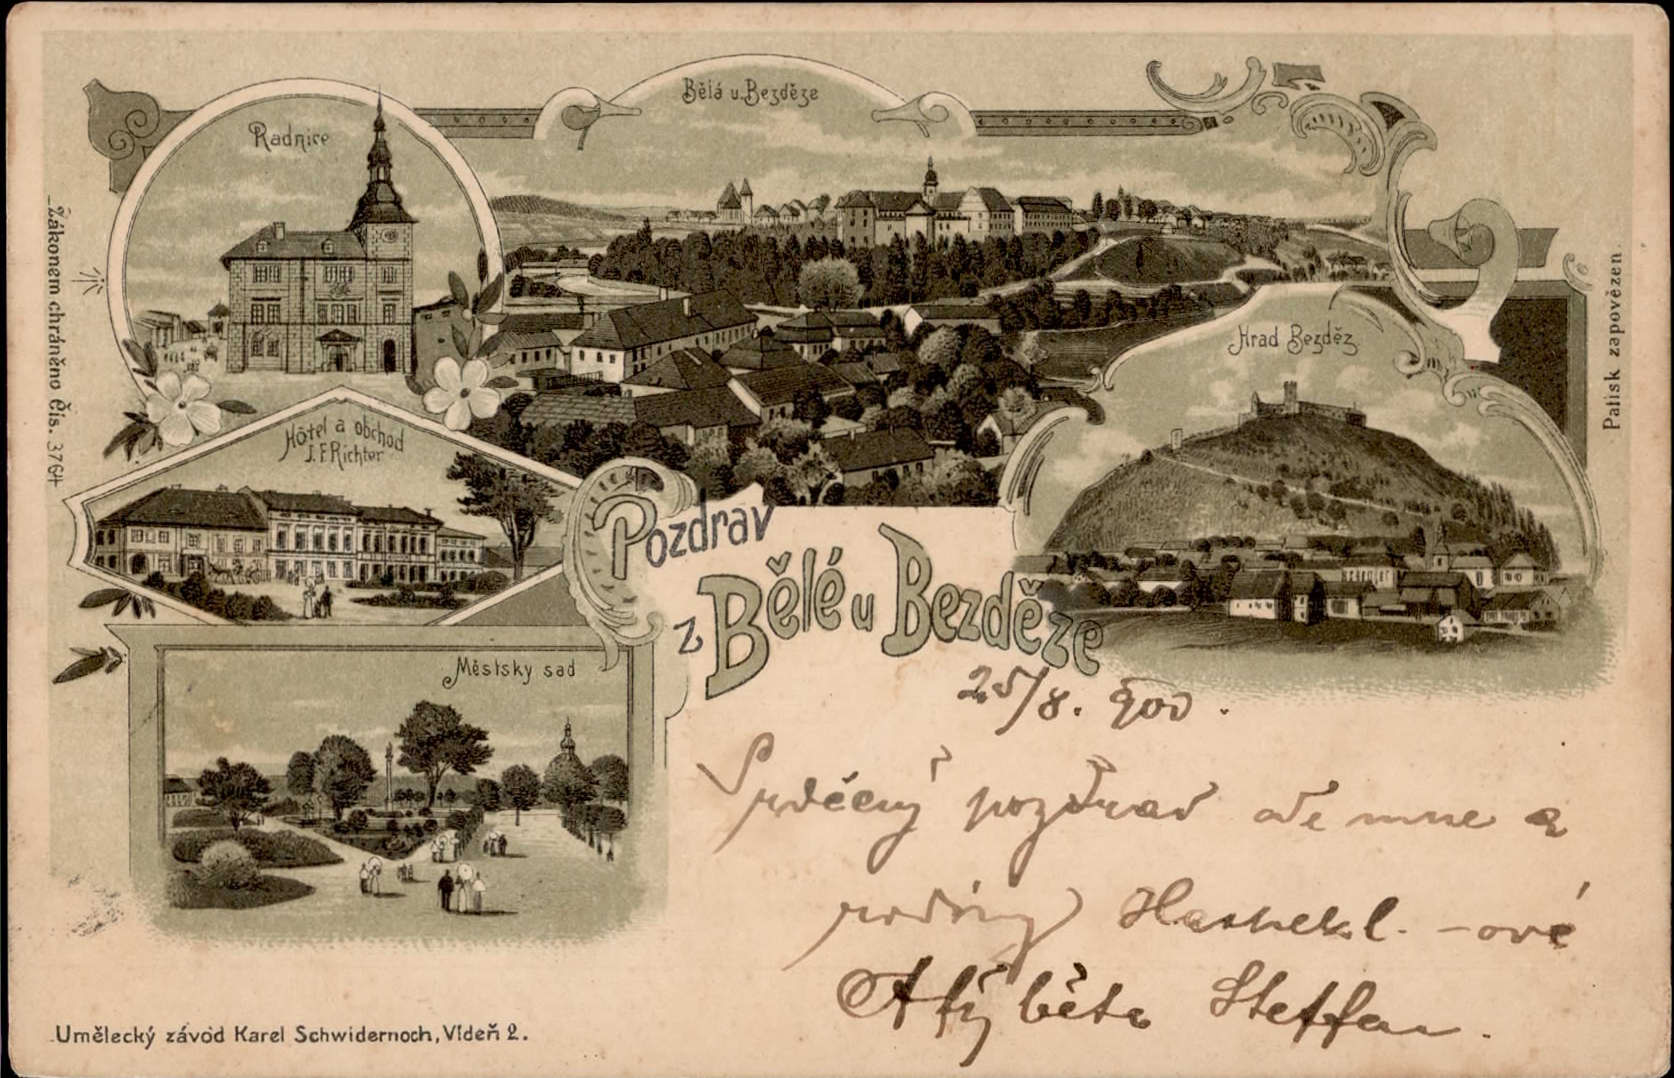 Radnice
Bělá u Bezděze
Hrad Bezděz
Hôtel a obchod
J. F. Richter
Městsky sad
Pozdrav
z Bělé u Bezděze
25/8. 900.
Srdečný pozdrav ode mne a
rodiny
Steffan.
Zákonem chráněno čis. 3764
Patisk zapovězen.
Umělecký závod Karel Schwidernoch, Vídeň 2.